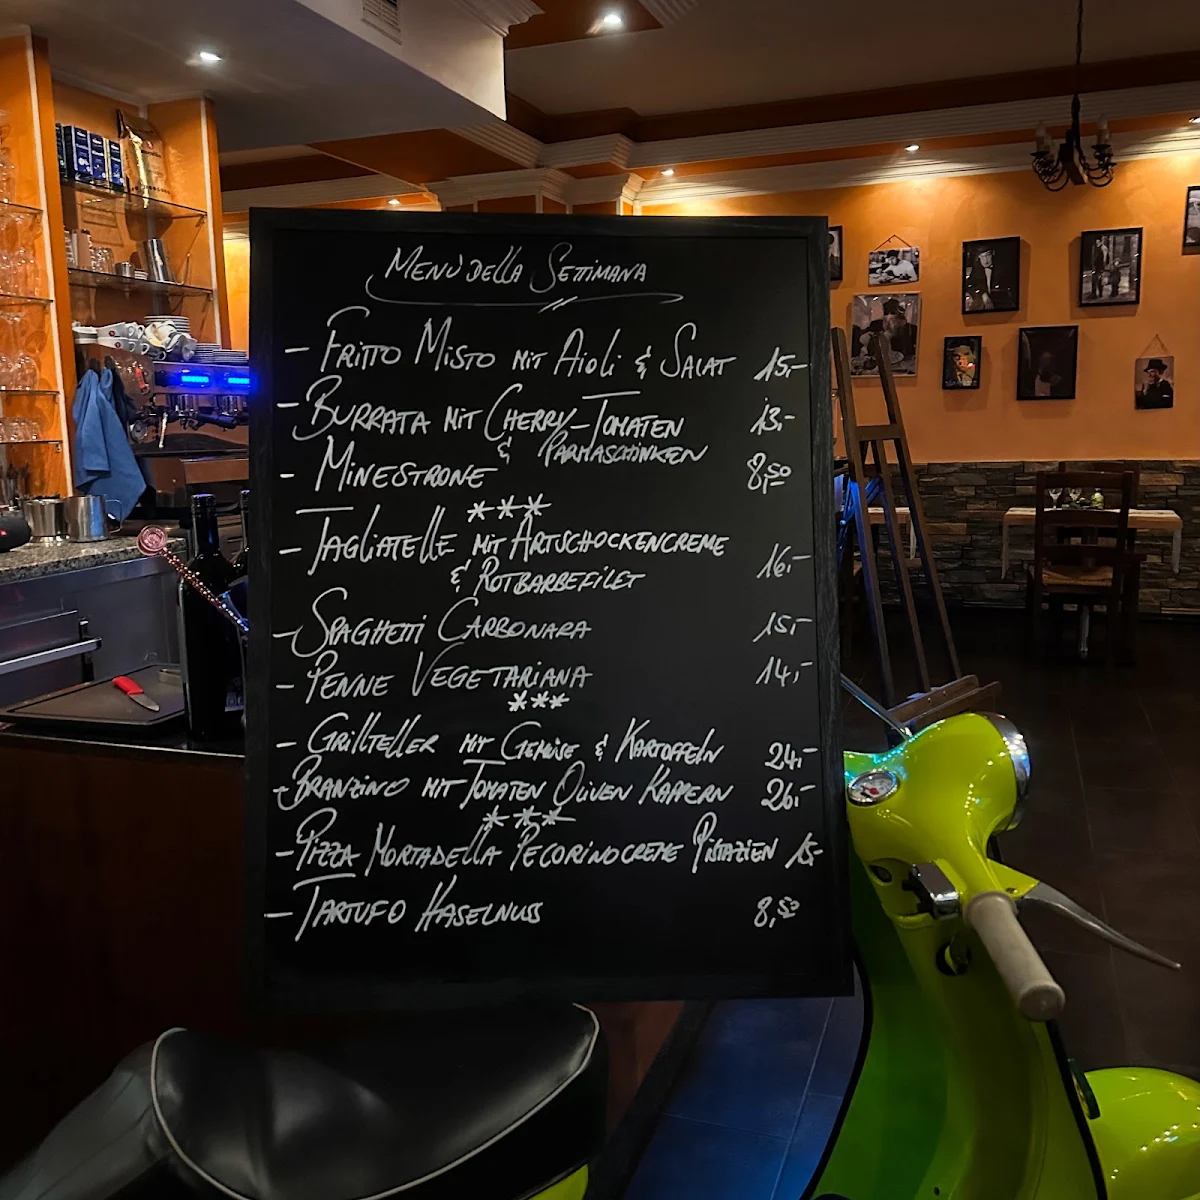 Menù della Settimana
- Fritto Misto mit Aioli & Salat 15,-
- Burrata mit Cherry-Tomaten 13,-
& Parmaschinken
- Minestrone 8,50
***
- Tagliatelle mit Artschockencreme
& Rotbarbefilet 16,-
- Spaghetti Carbonara 15,-
- Penne Vegetariana 14,-
***
- Grillteller mit Gemüse & Kartoffeln 24,-
- Branzino mit Tomaten Oliven Kapern 26,-
***
- Pizza Mortadella Pecorinocreme Pistazien 15-
- Tartufo Haselnuss 8,50